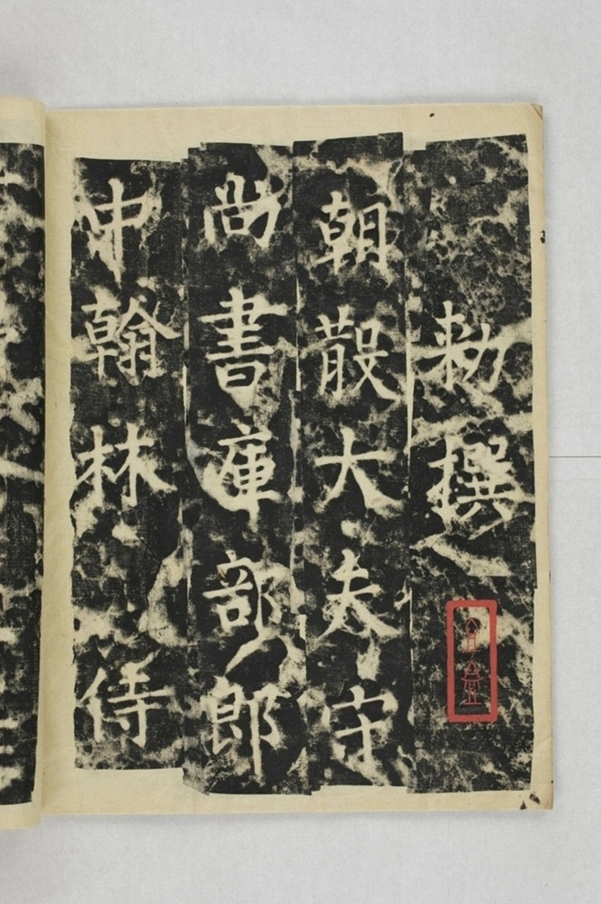 勅撰
朝散大夫守
尚書庫部郎
中翰林待